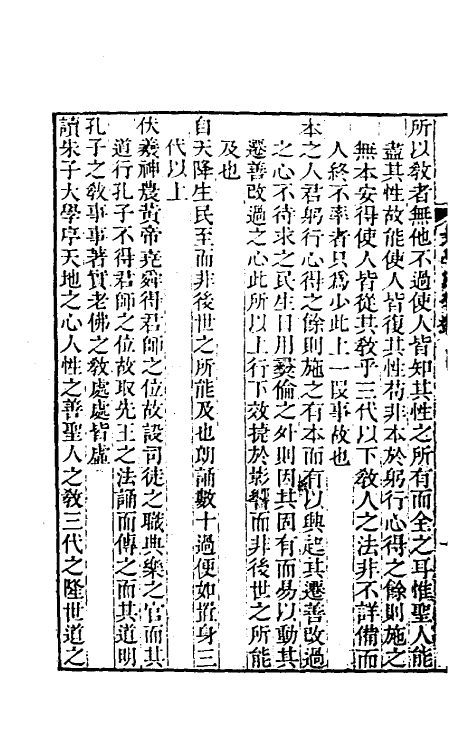 所以敎者無他不過使人皆知其性之所有而全之耳惟聖人能
盡其性故能使人皆復其性苟非本於躬行心得之餘則施之
無本安得使人皆從其敎乎三代以下敎人之法非不詳備而
人終不率者只爲少此上一段事故也
本之人君躬行心得之餘則施之有本而有以興起其遷善改過
之心不待求之民生日用彛倫之外則因其固有而易以動其
遷善改過之心此所以上行下效捷於影響而非後世之所能
及也
自天降生民至而非後世之所能及也朗誦數十過便如置身三
代以上
伏羲神農黃帝堯舜得君師之位故設司徒之職典樂之官而其
道行孔子不得君師之位故取先王之法誦而傳之而其道明
孔子之敎事事著實老佛之敎處處皆虛
讀朱子大學序天地之心人性之善聖人之敎三代之隆世道之